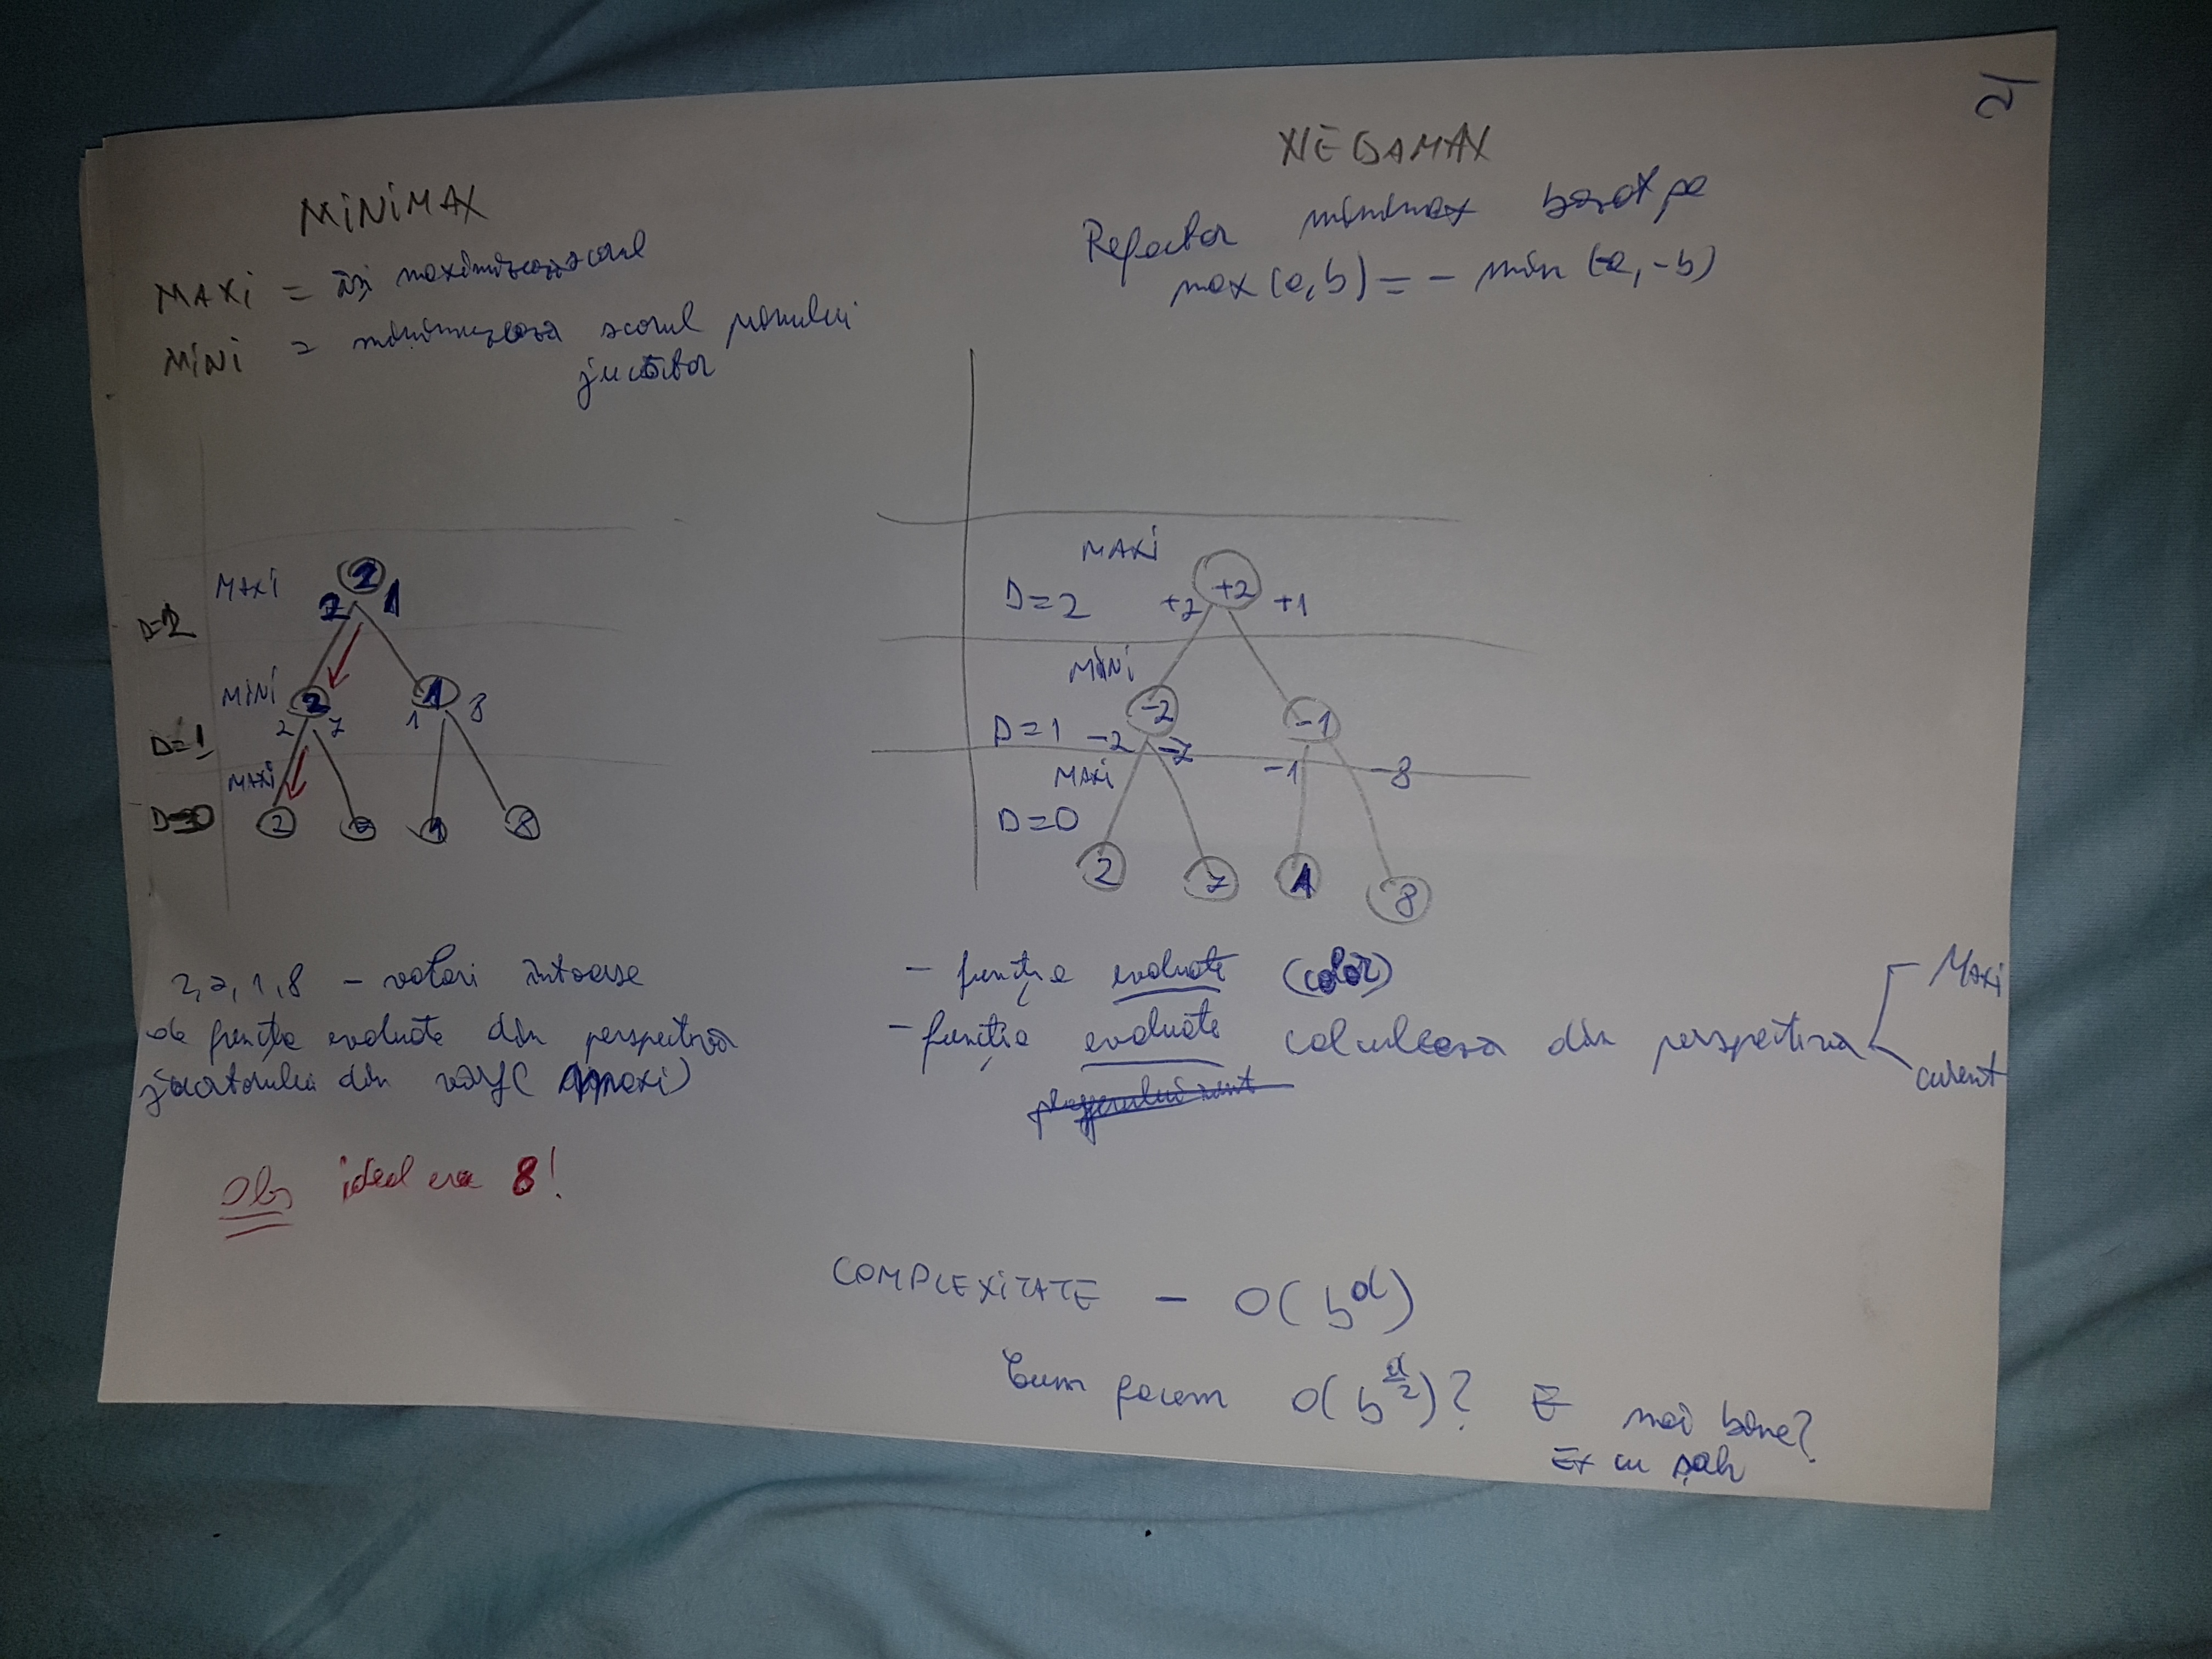 2/
MINIMAX
MAXI = își maximizează scorul
MINI = minimizează scorul primului
jucător
MAXI 2
D=2 2 1
MINI 2 1
2 7 1 8
D=1
MAXI
D=0 2 7 1 8
2, 7, 1, 8 - valori întoarse
de funcția evaluate din perspectiva
jucatorului din vârf( maxi)
Obs ideal era 8!
NEGAMAX
Refactor minimax bazat pe
max(a,b) = - min(-a,-b)
MAXI
+2
D=2 +2 +1
MINI
-2 -1
D=1 -2 -7
MAXI -1 -8
D=0
2 7 1 8
- funcția evaluate (color)
Maxi
- funcția evaluate calculeaza din perspectiva
curent
COMPLEXITATE - O(b^d)
Cum facem O(b^{d/2})? E mai bine?
Ex cu șah